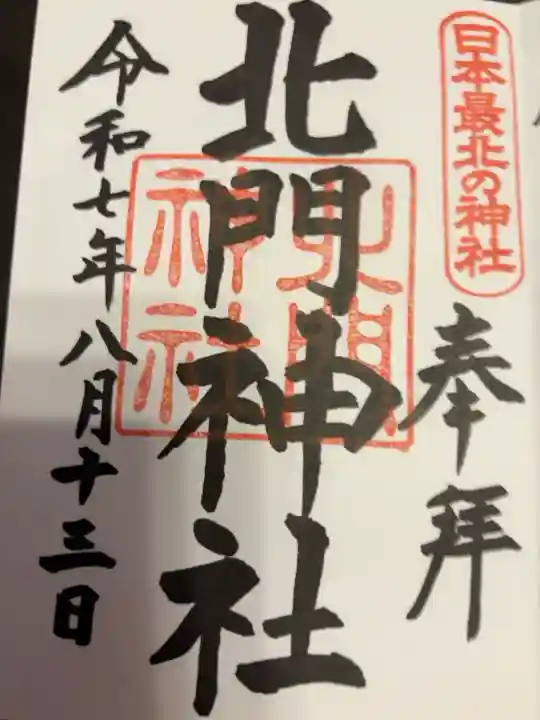 日本最北の神社
奉拝
北門神社
北門
神社
令和七年八月十三日